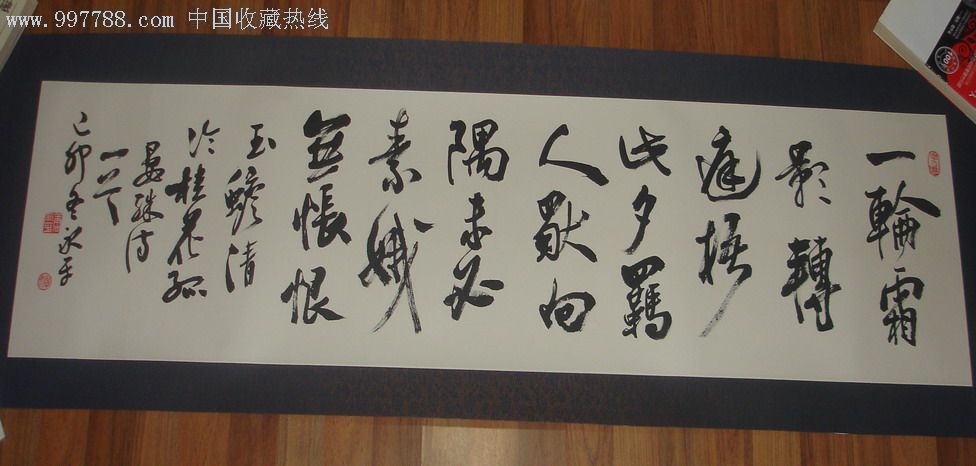 www.997788.com 中国收藏热线
一輪霜
影轉
庭梧
此夕羈
人獨向
隅未必
素娥
無悵恨
玉蟾清
冷桂花孤
晏殊詩
一首
己卯冬永平